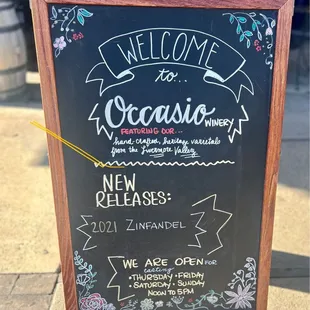 WELCOME
to...
Occasio
WINERY
FEATURING OUR...
hand-crafted, heritage varietals
from the Livermore Valley
NEW
RELEASES:
2021 ZINFANDEL
WE ARE OPEN for
tasting
•THURSDAY •FRIDAY
•SATURDAY •SUNDAY
NOON TO 5PM